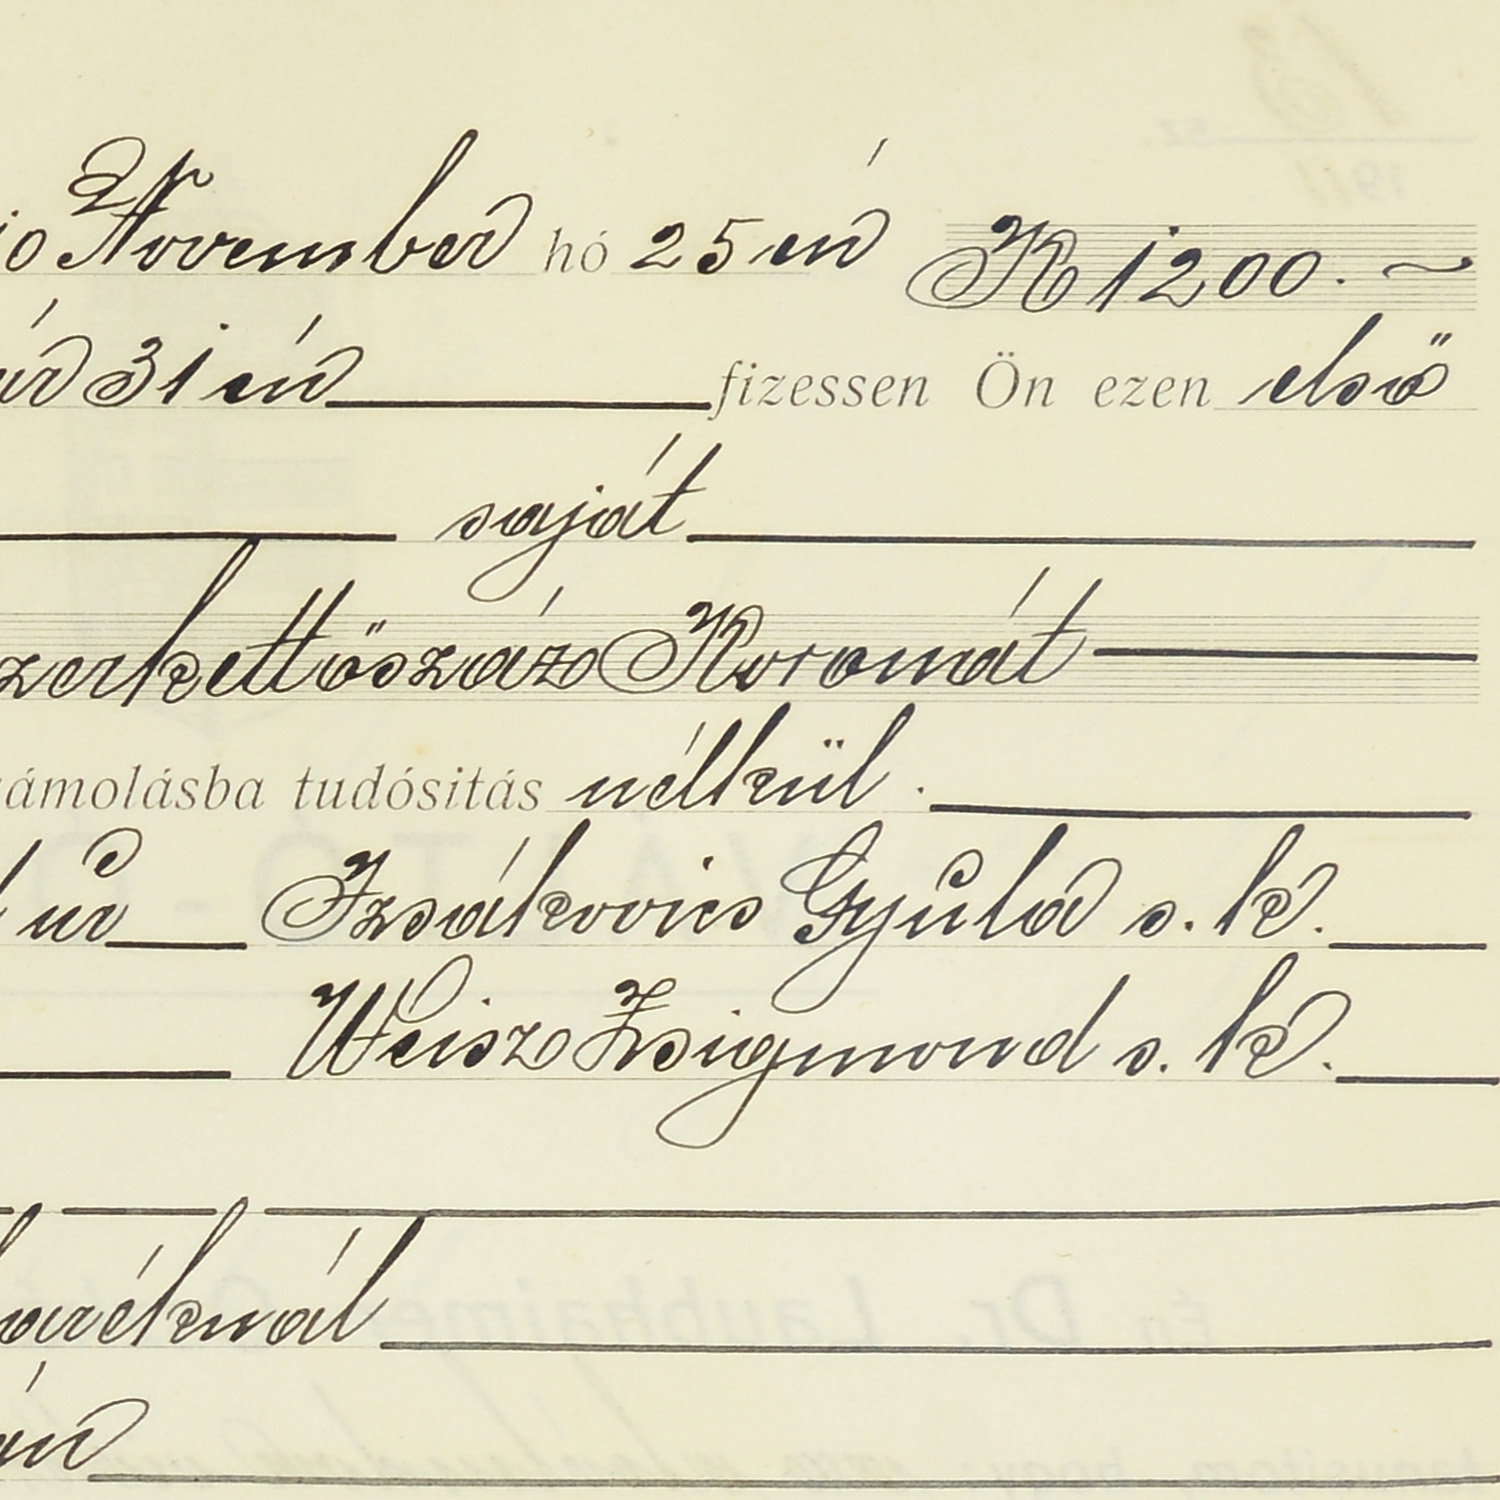 10 November hó 25 én K 1200. ~
ár 31 én fizessen Ön ezen első
saját
zerkettőszáz Koronát
zámolásba tudósitás nélkül.
úr Izsákovics Gyula s. k.
Weisz Zsigmond s. k.
aréknál
án